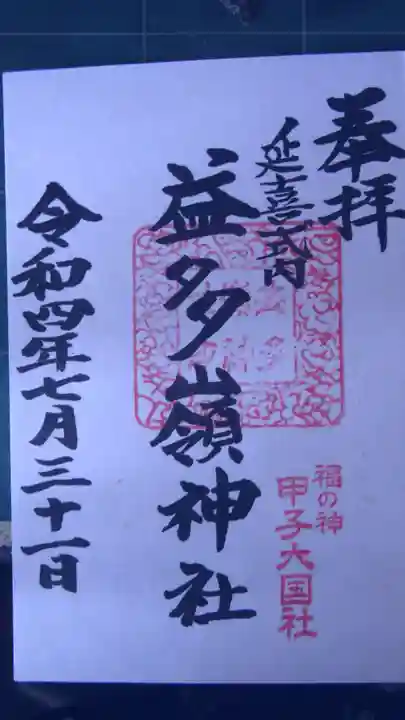 奉拝
延喜式内
益多嶺神社
福の神
甲子大国社
令和四年七月三十一日